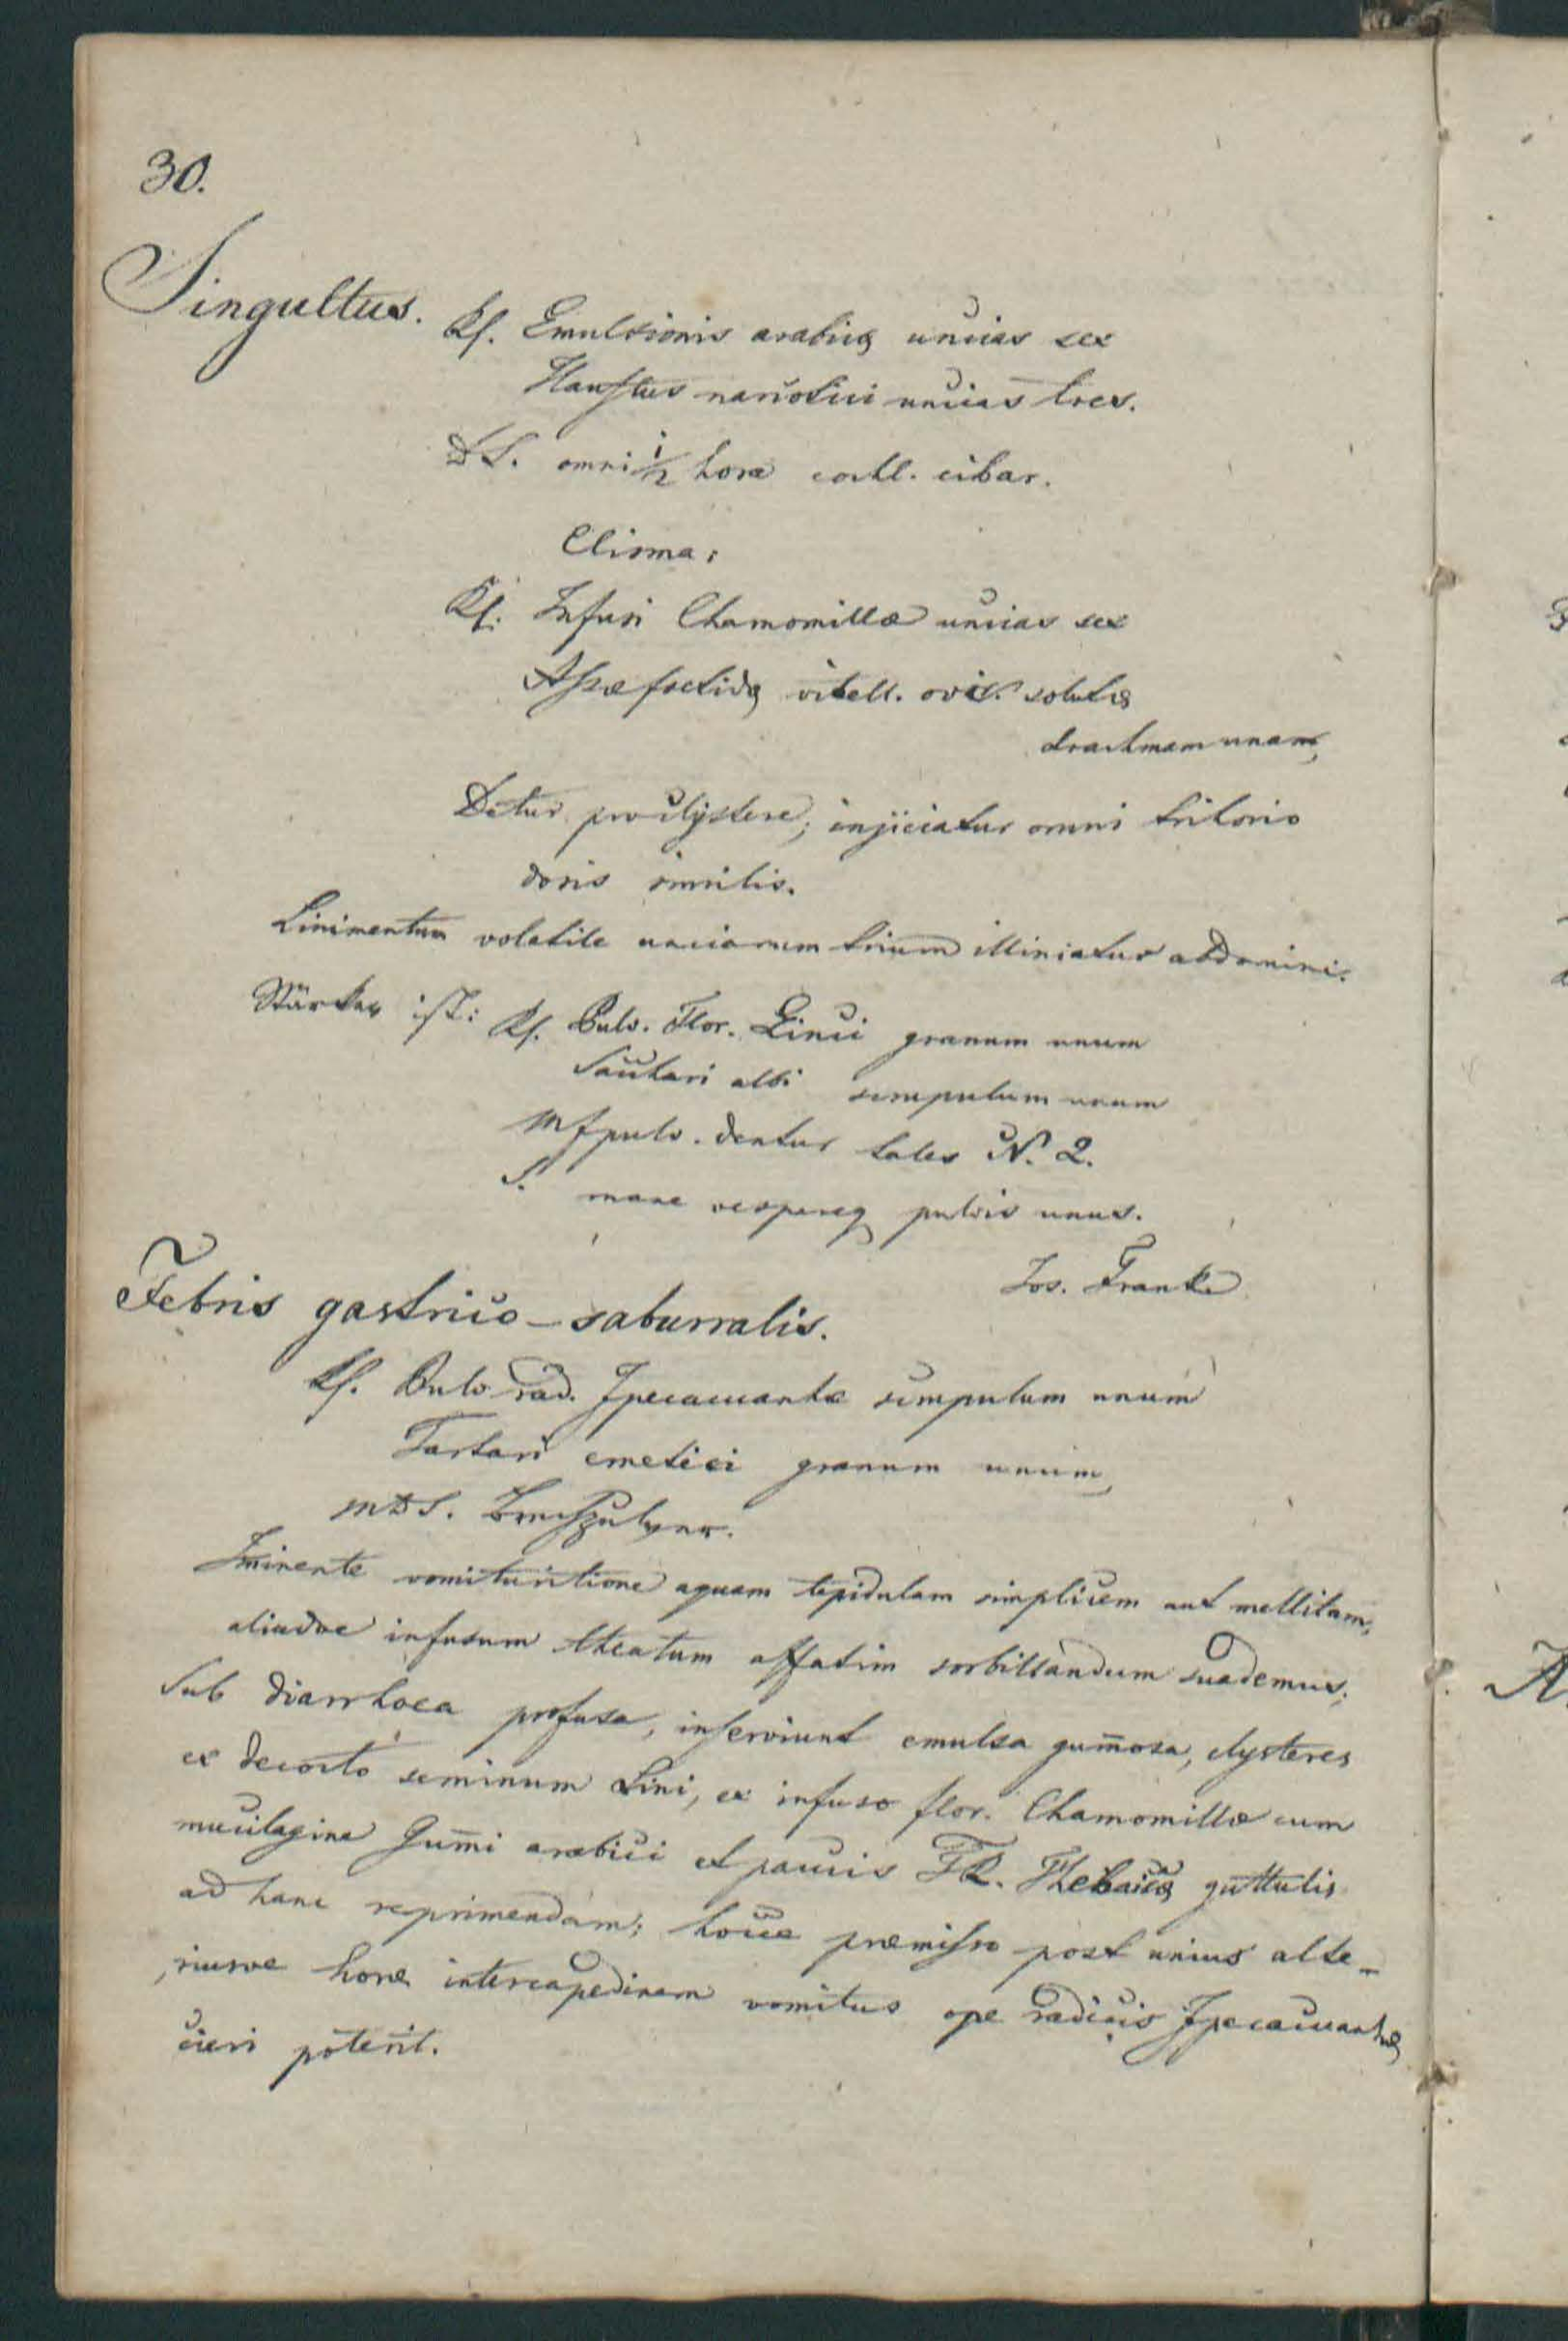 30.
Singultus.
Rp. Emulsionis arabicæ uncias sex
Haustus narcotici uncias tres.
DS. omni 1/2 hora cochl. cibar.
Clisma:
Rp. Infusi Chamomillæ uncias sex
Assæ foetidæ vitell. ovi solutæ
drachmam unam,
Detur pro clÿstere; injiciatur omni trihorio
dosis similis.
Linimentum volatile unciarum trium illiniatur abdomini.
Stärker ist: Rp. Pulv. Flor. Zinci granum unum
Sacchari albi scrupulum unum
Mf pulv. dentur tales N. 2.
S. mane vespereq pulvis unus.
Jos. Frank
Febris gastrico-saburralis.
Rp. Pulv rad. Ipecacuanhæ scrupulum unum
Tartari emetici granum unum,
MDS. Brechpulver.
Iminente vomituritione aquam tepidulam simplicem aut mellitam,
aliudve infusum theatum affatim sorbillandum suademus;
Sub diarrhoea profusa, inserviunt emulsa gum̄osa, clysteres
ex decocto seminum Lini, ex infuso flor. Chamomillæ cum
mucilagine Gum̄i arabici et paucis TR. Thebaicæ guttulis
ad hanc reprimendam; hocce præmisso post unius alte-
riusve horæ intercapedinem vomitus ope radicis Ipecacuanhæ
cieri poterit.